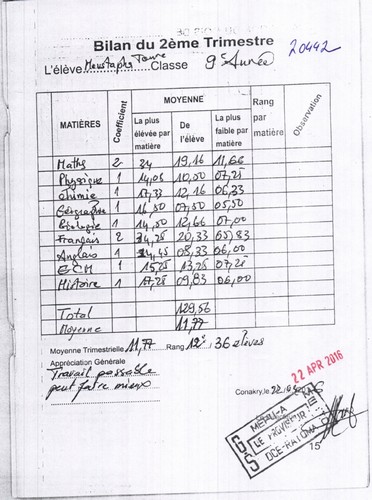 Bilan du 2ème Trimestre
20442
L'élève Moustapha Toure Classe 9e Année
MATIÈRES Coefficient MOYENNE Rang par matière Observation
La plus élévée par matière De l'élève La plus faible par matière
Maths 2 24 19,16 11,66
Physique 1 14,05 10,00 07,25
Chimie 1 17,33 12,16 06,33
Géographie 1 16,50 07,50 05,50
Biologie 1 14,50 12,66 07,00
Français 2 24,25 20,33 05,83
Anglais 1 14,45 08,33 06,00
ECM 1 15,25 13,25 07,25
Histoire 1 17,25 09,83 06,00
Total 129,56
Moyenne 11,77
Moyenne Trimestrielle 11,77 Rang 12e 36 élèves
Appréciation Générale
Travail passable
peut faire mieux
22 APR 2016
Conakry, le 22/04
MEPU-A
LE PROVISEUR
DCE-RATOMA
15